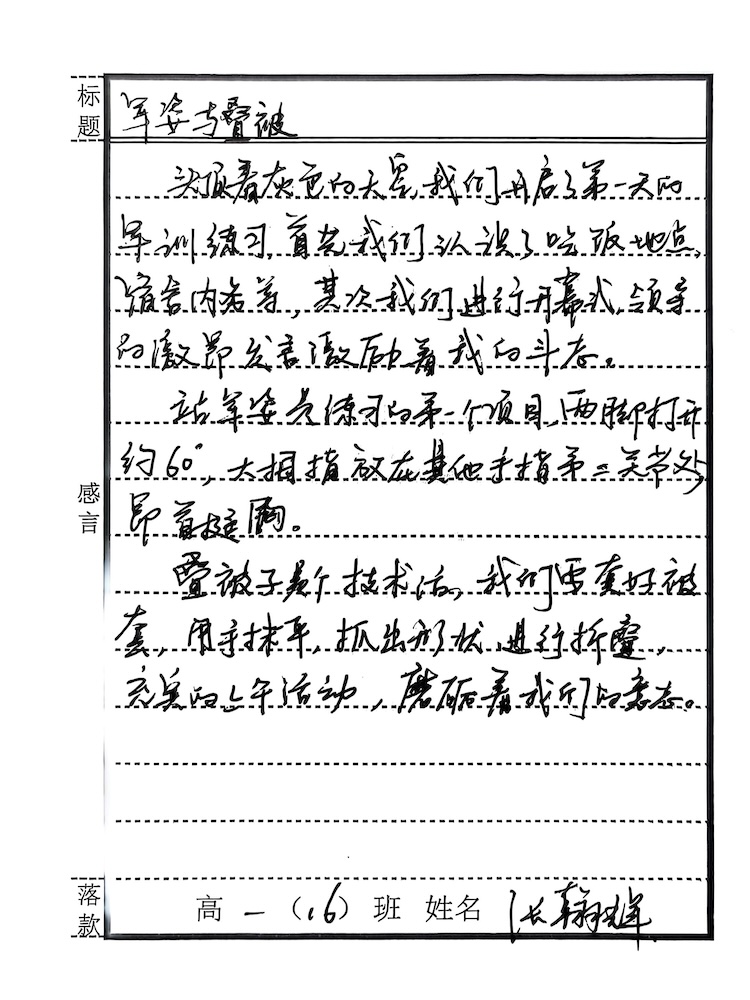 标题
军姿与叠被
头顶着灰色的天空,我们开启了第一天的
军训练习,首先我们认识了吃饭地点,
宿舍内务等,其次我们进行开幕式,领导
的激昂发言激励着我的斗志。
站军姿是练习的第一个项目,两脚打开
约60°,大拇指放在其他手指第二关节处,
昂首挺胸。
感言
叠被子是个技术活,我们需套好被
套,用手抹平,抓出形状,进行折叠,
充实的上午活动,磨砺着我们的意志。
落款
高一(16)班 姓名 张翰